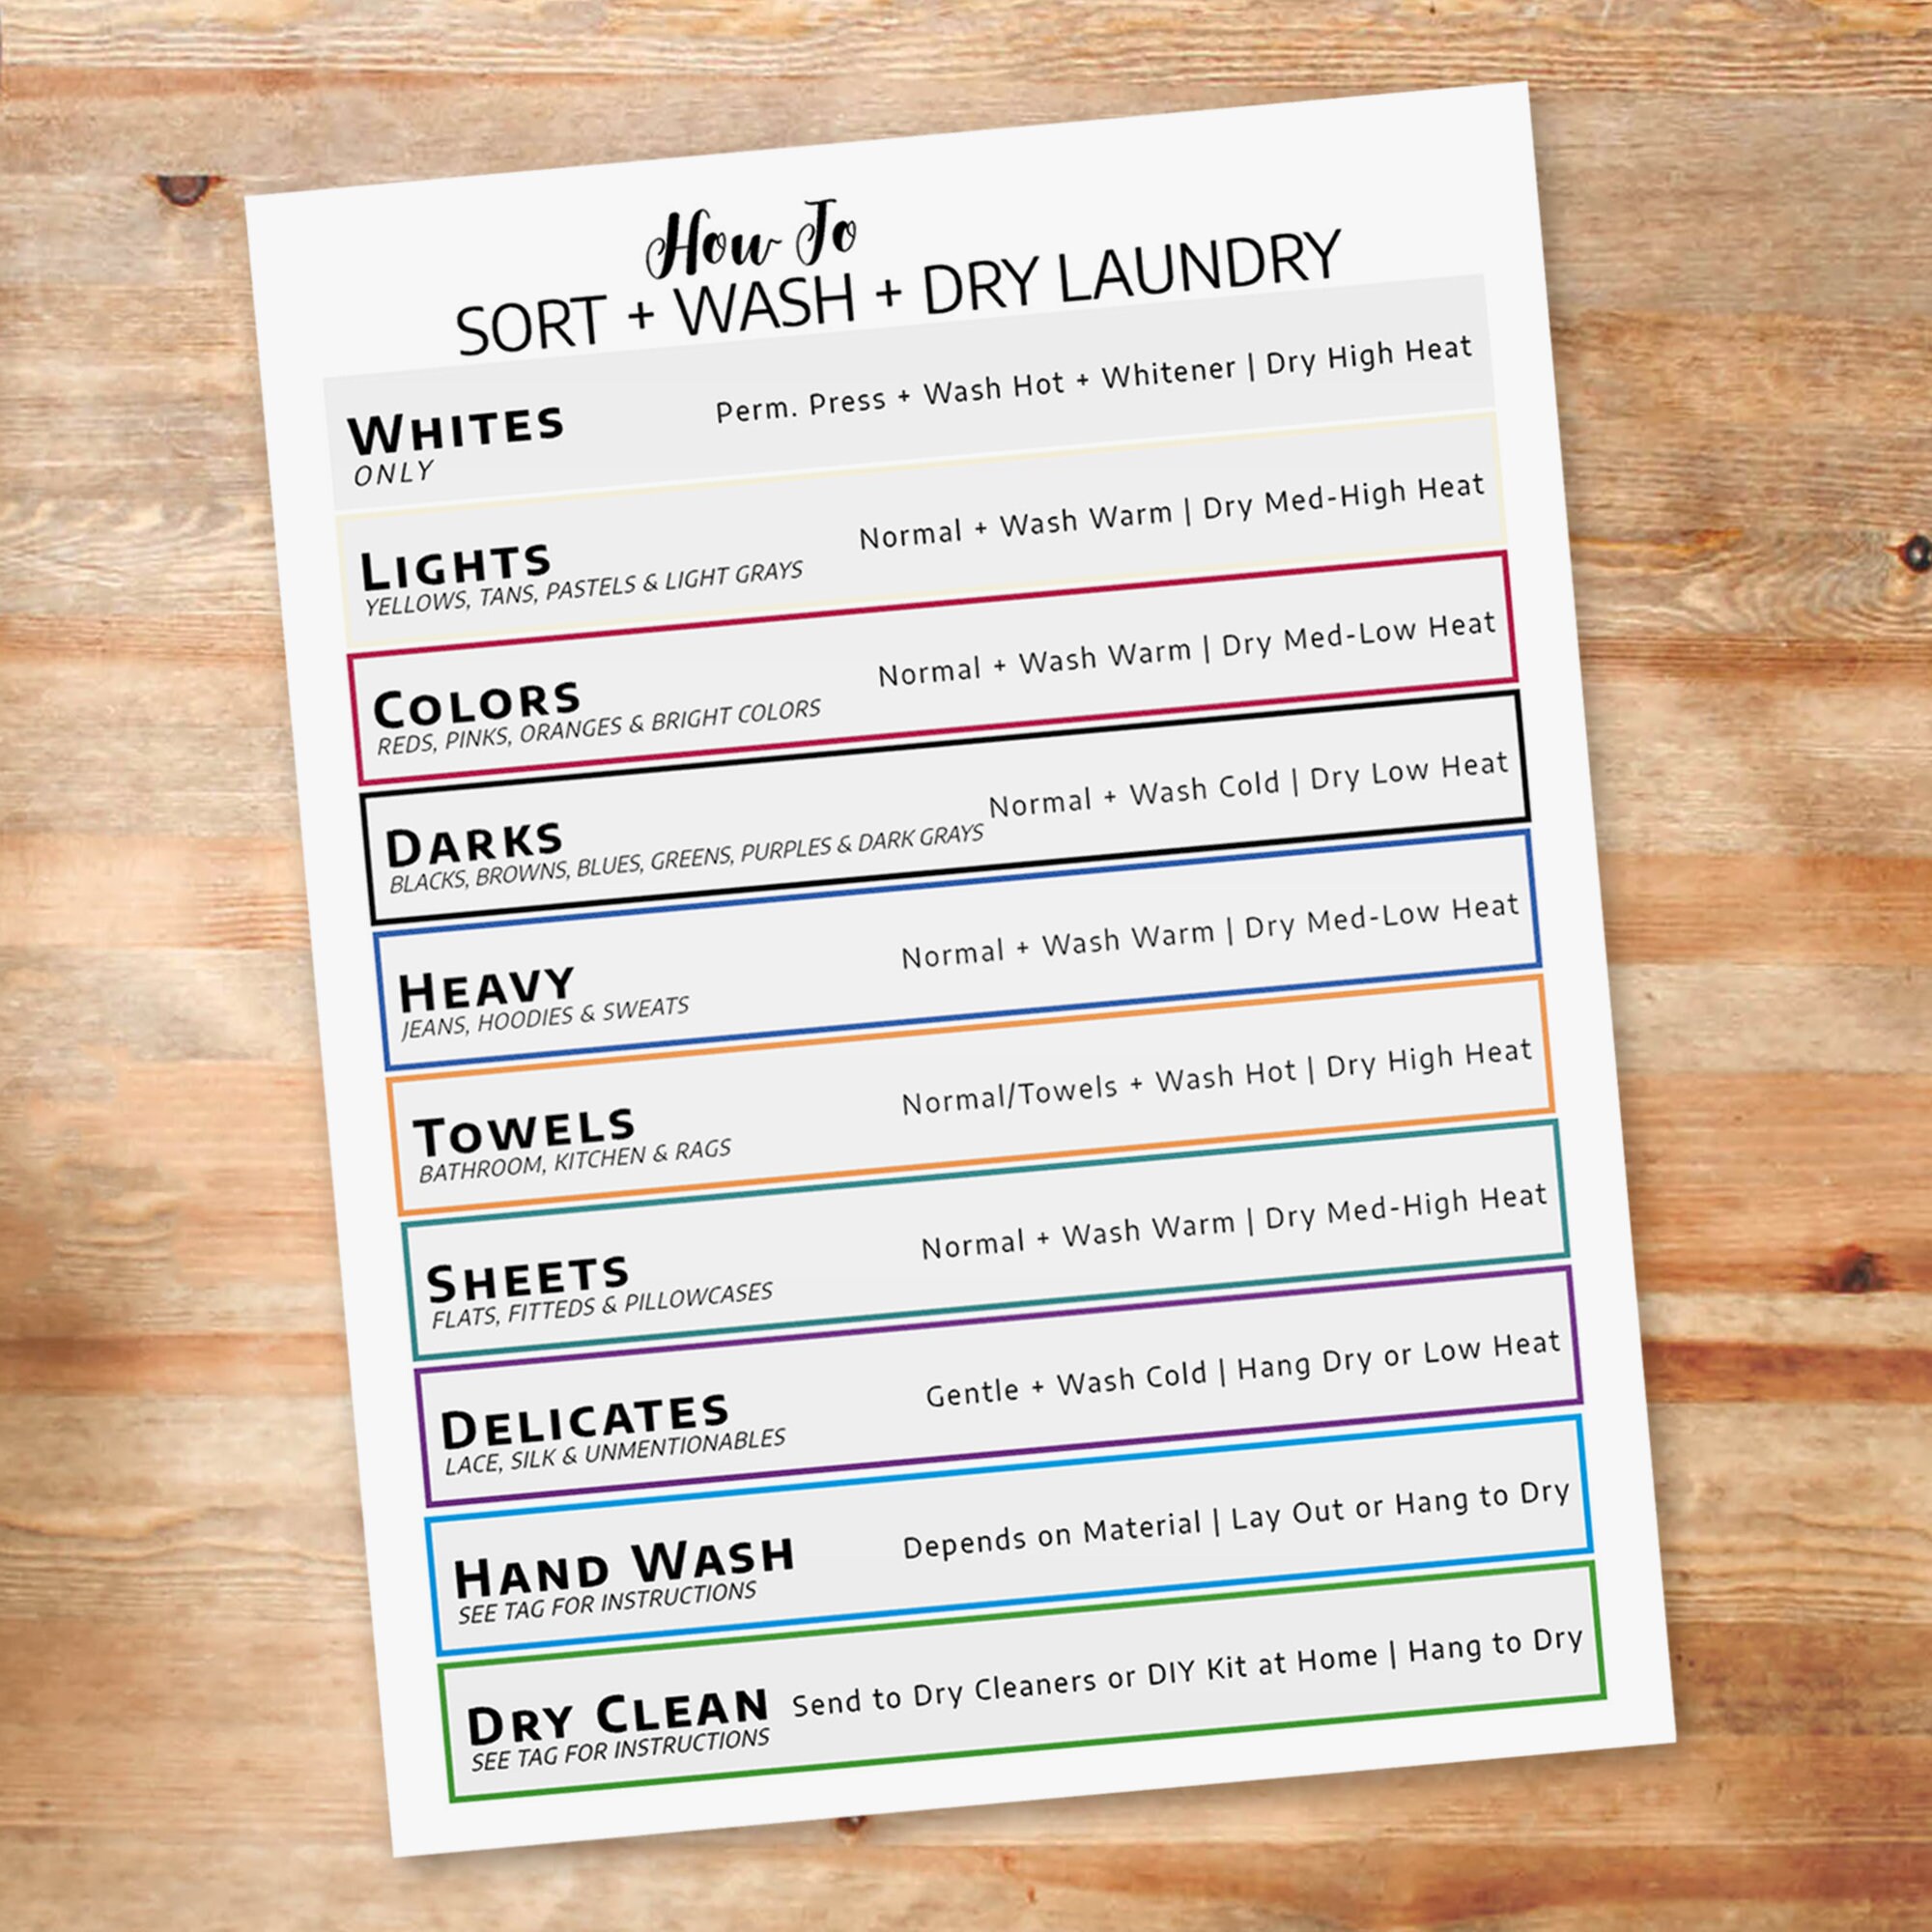 How To
SORT + WASH + DRY LAUNDRY
WHITES
ONLY
Perm. Press + Wash Hot + Whitener | Dry High Heat
LIGHTS
YELLOWS, TANS, PASTELS & LIGHT GRAYS
Normal + Wash Warm | Dry Med-High Heat
COLORS
REDS, PINKS, ORANGES & BRIGHT COLORS
Normal + Wash Warm | Dry Med-Low Heat
DARKS
BLACKS, BROWNS, BLUES, GREENS, PURPLES & DARK GRAYS
Normal + Wash Cold | Dry Low Heat
HEAVY
JEANS, HOODIES & SWEATS
Normal + Wash Warm | Dry Med-Low Heat
TOWELS
BATHROOM, KITCHEN & RAGS
Normal/Towels + Wash Hot | Dry High Heat
SHEETS
FLATS, FITTEDS & PILLOWCASES
Normal + Wash Warm | Dry Med-High Heat
DELICATES
LACE, SILK & UNMENTIONABLES
Gentle + Wash Cold | Hang Dry or Low Heat
HAND WASH
SEE TAG FOR INSTRUCTIONS
Depends on Material | Lay Out or Hang to Dry
DRY CLEAN
SEE TAG FOR INSTRUCTIONS
Send to Dry Cleaners or DIY Kit at Home | Hang to Dry